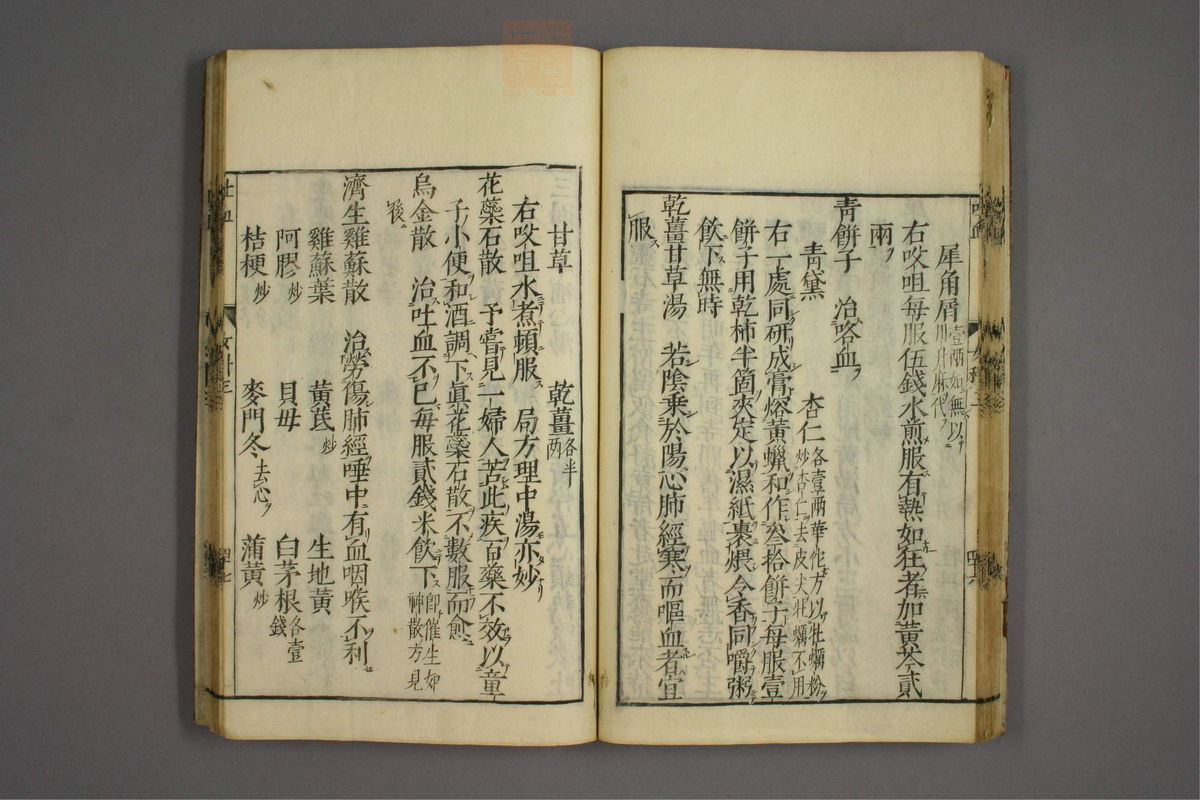 犀角屑 壹兩如無以川升麻代
右㕮咀每服伍錢水煎服有熱如狂者加黃芩貳
兩
青餅子　治咯血
青黛　杏仁 各壹兩華佗方以牡蠣粉炒杏仁去皮尖牡蠣不用
右一處同研成膏熔黃蠟和作叁拾餅子每服壹
餅子用乾柿半箇夾定以濕紙裹煨令香同嚼粥
飲下無時
乾薑甘草湯　若陰乘於陽心肺經寒而嘔血者宜
服
甘草　乾薑 各半兩
右㕮咀水煮頓服　局方理中湯亦妙
花蘂石散　予嘗見一婦人苦此疾百藥不效以童
子小便和酒調下眞花蘂石散不數服而愈
烏金散　治吐血不已每服貳錢米飲下 即催生如神散方見
後
濟生雞蘇散　治勞傷肺經唾中有血咽喉不利
雞蘇葉　黃芪 炒　生地黃
阿膠 炒　貝母　白茅根 各壹錢
桔梗 炒　麥門冬 去心　蒲黃 炒
吐血
四七
四六